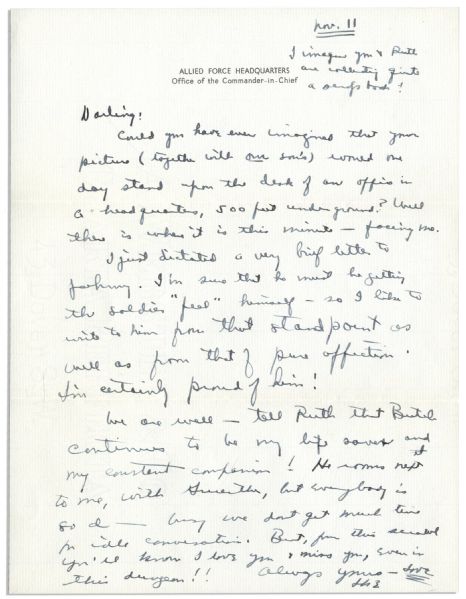 Nov. 11
I imagine you & Ruth
are collecting quite
a scrap book!
ALLIED FORCE HEADQUARTERS
Office of the Commander-in-Chief
Darling:
Could you have ever imagined that your
picture (together with our son's) would one
day stand upon the desk of an office in
a headquarters, 500 feet underground? Well
there is where it is this minute — facing me.
I just dictated a very brief letter to
Johnny. I'm sure that he must be getting
the soldier "feel" himself — so I like to
write to him from that standpoint as
well as from that of pure affection.
I'm certainly proud of him!
We are well — tell Ruth that Butch
continues to be my life saver and
my constant companion! He rooms next
to me, with but everybody is
so d— busy we don't get much time
for idle conversation. But, from this scrawl
you'll know I love you & miss you, even in
this dungeon!! Always yours — love